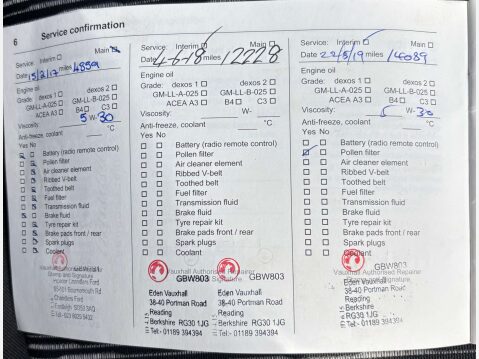 6 Service confirmation
Service: Interim Main
Date 15/2/17 miles 4859
Engine oil
Grade: dexos 1 dexos 2
GM-LL-A-025 GM-LL-B-025
ACEA A3 B4 C3
Viscosity: 5 W- 30
Anti-freeze, coolant °C
Yes No
Battery (radio remote control)
Pollen filter
Air cleaner element
Ribbed V-belt
Toothed belt
Fuel filter
Transmission fluid
Brake fluid
Tyre repair kit
Brake pads front / rear
Spark plugs
Coolant
Stamp and Signature
Chandlers Ford
Service: Interim Main
Date 4-6-18 miles 12228
Engine oil
Grade: dexos 1 dexos 2
GM-LL-A-025 GM-LL-B-025
ACEA A3 B4 C3
Viscosity: W-
Anti-freeze, coolant °C
Yes No
Battery (radio remote control)
Pollen filter
Air cleaner element
Ribbed V-belt
Toothed belt
Fuel filter
Transmission fluid
Brake fluid
Tyre repair kit
Brake pads front / rear
Spark plugs
Coolant
Vauxhall Authorised Repairer
GBW803 GBW803
Eden Vauxhall
38-40 Portman Road
Reading
Berkshire RG30 1JG
Tel:- 01189 394394
Eden Vauxhall
38-40 Portman Road
Reading
Berkshire RG30 1JG
Tel:- 01189 394394
Service: Interim Main
Date 22/5/19 miles 14089
Engine oil
Grade: dexos 1 dexos 2
GM-LL-A-025 GM-LL-B-025
ACEA A3 B4 C3
Viscosity: 5 W- 30
Anti-freeze, coolant °C
Yes No
Battery (radio remote control)
Pollen filter
Air cleaner element
Ribbed V-belt
Toothed belt
Fuel filter
Transmission fluid
Brake fluid
Tyre repair kit
Brake pads front / rear
Spark plugs
Coolant
GBW803
Vauxhall Authorised Repairer
Eden Vauxhall
38-40 Portman Road
Reading
Berkshire RG30 1JG
Tel:- 01189 394394